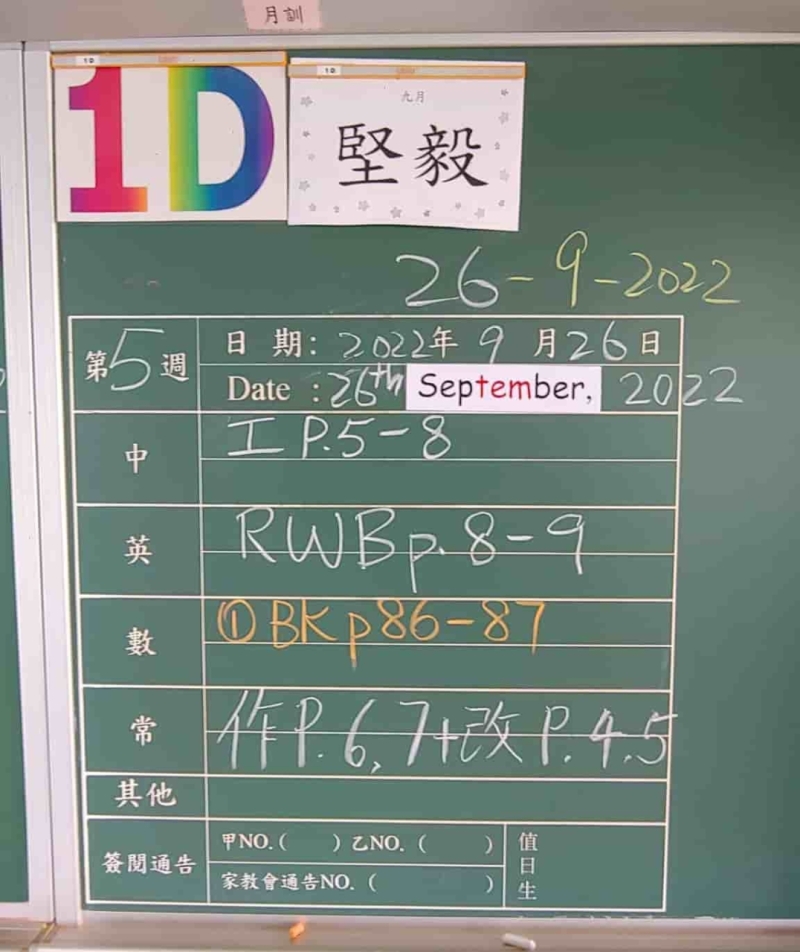 月訓
1D
九月
堅毅
26-9-2022
第5週
日 期: 2022年 9 月26日
Date : 26th September, 2022
中
工 P.5-8
英
RWB p.8-9
數
① BK p86-87
常
作P.6,7+改P.4.5
其他
簽閱通告
甲NO.( ) 乙NO.( )
家教會通告NO.( )
值日生